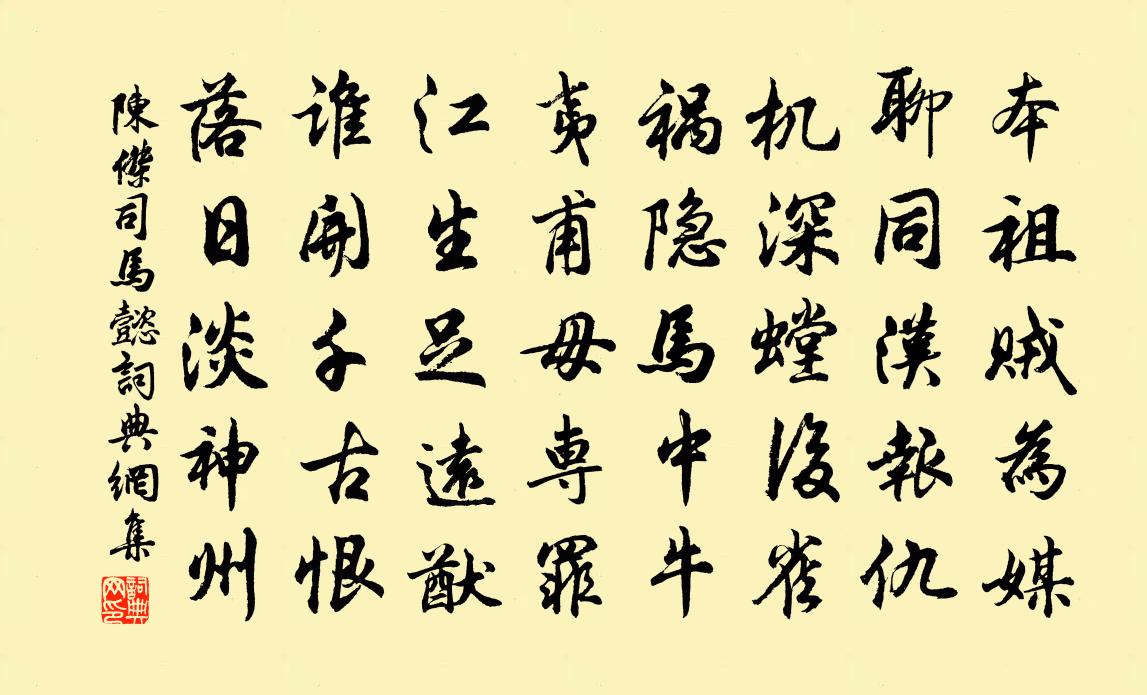 本祖賊為媒
聊同漢報仇
机深螳後雀
祸隐馬中牛
夷甫毋専罪
江生足遠猷
谁開千古恨
落日淡神州
陳傑司馬懿詞典網集
詞典网印